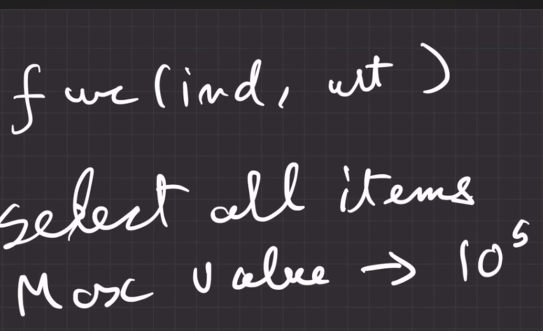 func(ind, wt)
select all items
Max value → 10⁵